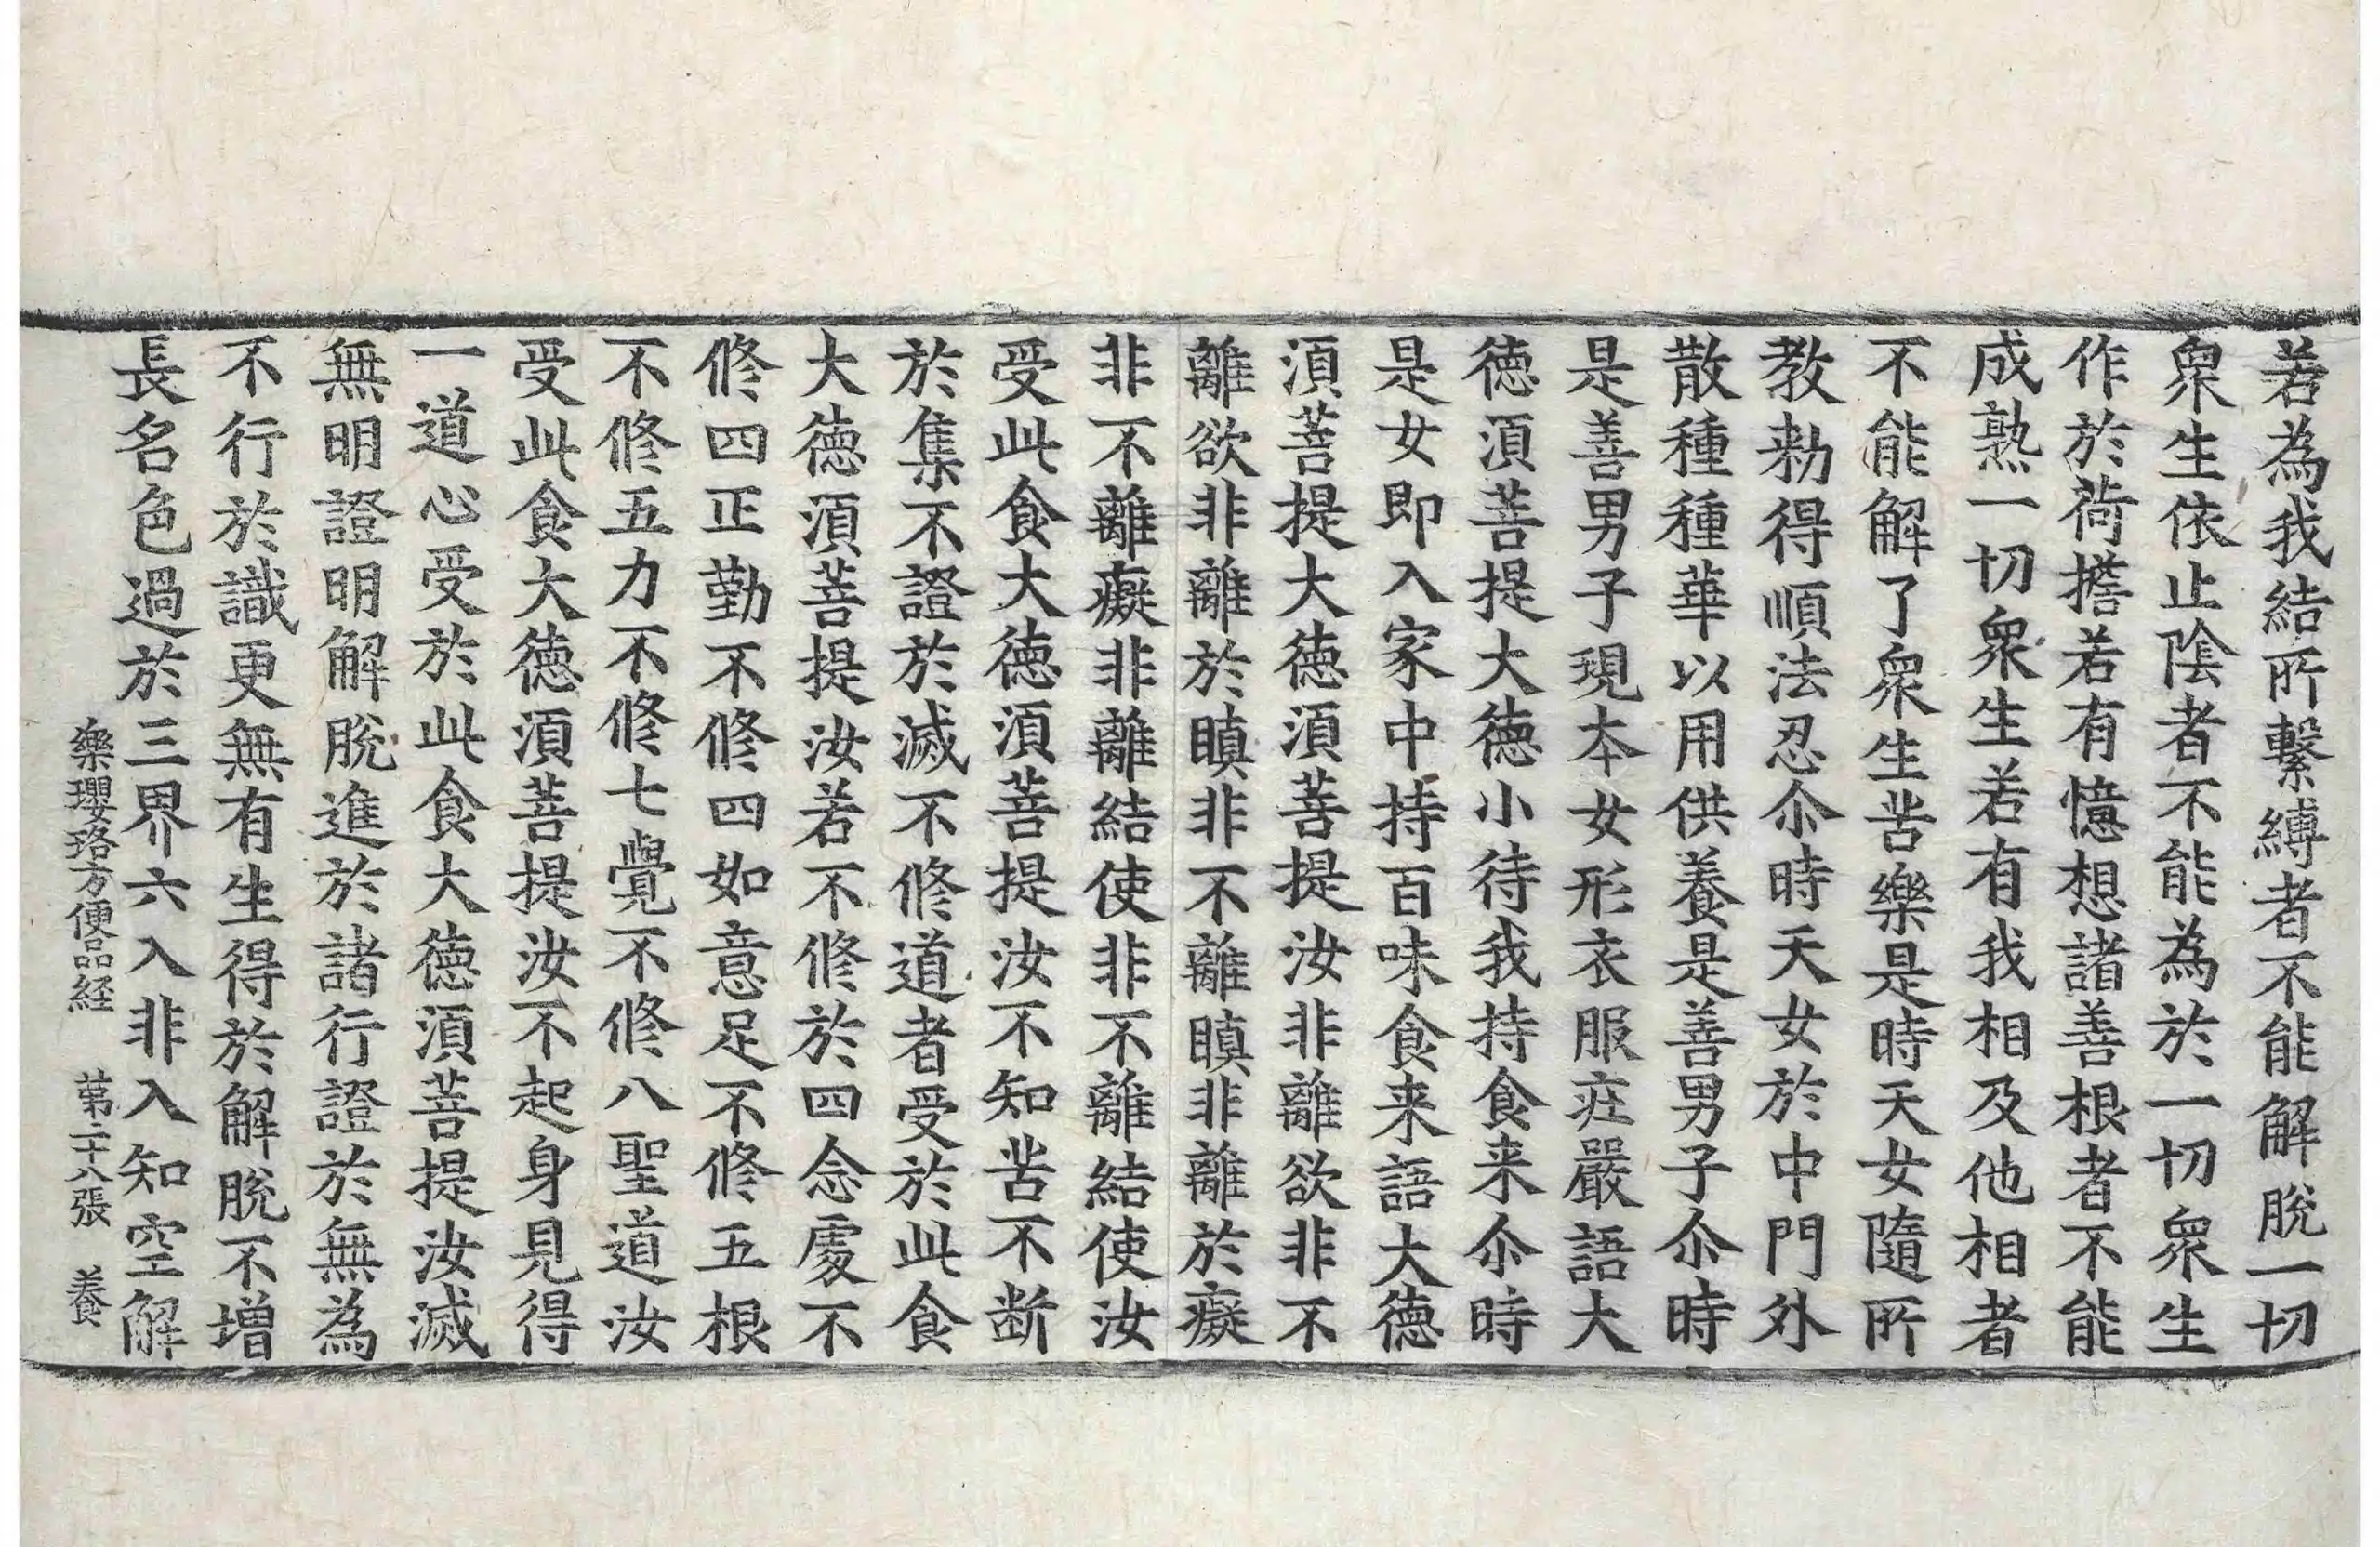 若為我結所繫縛者不能解脫一切
衆生依止陰者不能為於一切衆生
作於荷擔若有憶想諸善根者不能
成熟一切衆生若有我相及他相者
不能解了衆生苦樂是時天女隨所
教勑得順法忍尒時天女於中門外
散種種華以用供養是善男子尒時
是善男子現本女形衣服庄嚴語大
徳湏菩提大徳小待我持食来尒時
是女即入家中持百味食来語大徳
湏菩提大徳湏菩提汝非離欲非不
離欲非離於瞋非不離瞋非離於癡
非不離癡非離結使非不離結使汝
受此食大徳湏菩提汝不知苦不断
於集不證於滅不修道者受於此食
大徳湏菩提汝若不修於四念處不
修四正勤不修四如意足不修五根
不修五力不修七覺不修八聖道汝
受此食大徳湏菩提汝不起身見得
一道心受於此食大徳湏菩提汝滅
無明證明解脫進於諸行證於無為
不行於識更無有生得於解脫不增
長名色過於三界六入非入知空解
樂瓔珞方便品経 苐二十八張 養